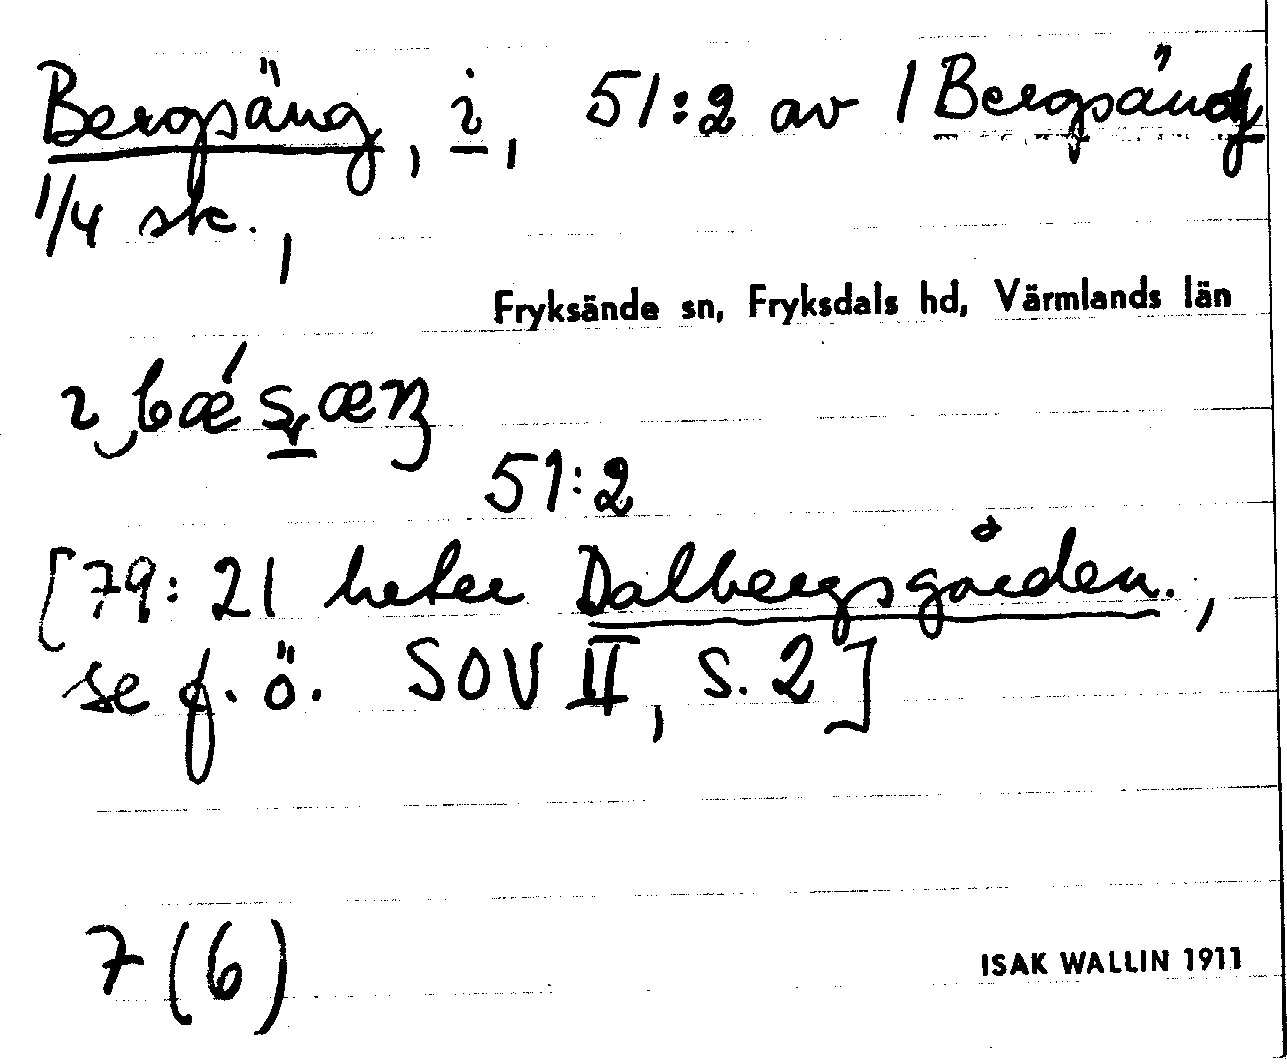 Bergsäng, i, 51:2 av 1 Bergsäng
1/4 sk.,
Fryksände sn, Fryksdals hd, Värmlands län
51:2
[79:21 heter Dalbergsgården.,
se f. ö. SOV II, s. 2]
7 (6)
ISAK WALLIN 1911